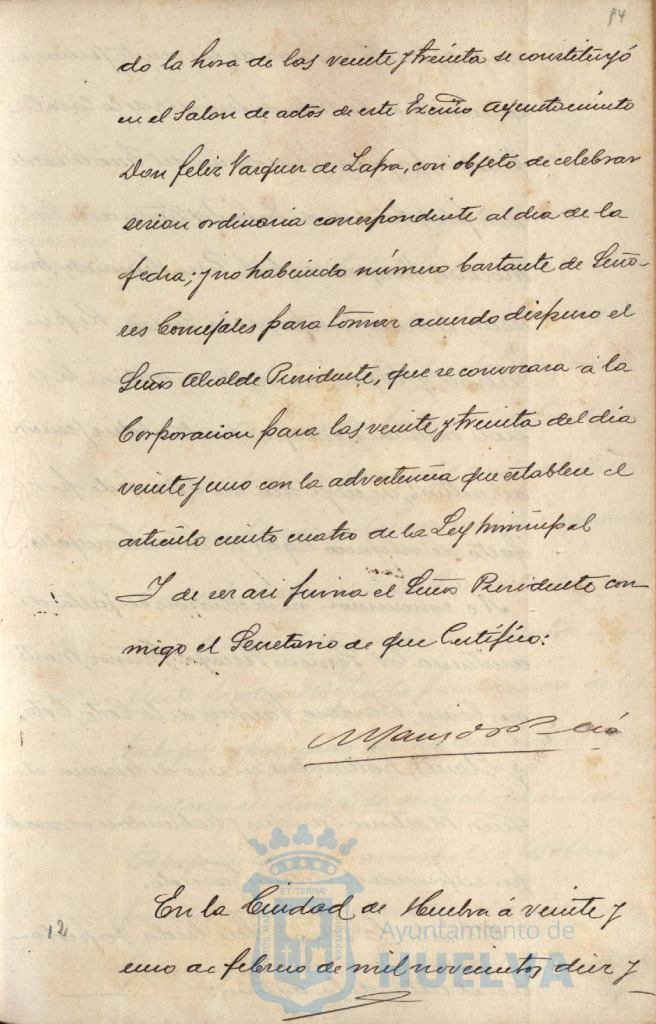 84
do la hora de las veinte y treinta se constituyó
en el Salon de actos de este Excmo Ayuntamiento
Don Felix Vazquez de Zafra, con objeto de celebrar
sesion ordinaria correspondiente al dia de la
fecha; y no habiendo número bastante de Seño-
res Concejales para tomar acuerdo dispuso el
Señor Alcalde Presidente, que se convocara á la
Corporacion para las veinte y treinta del dia
veinte y uno con la advertencia que establece el
artículo ciento cuatro de la Ley Municipal
Y de ser asi firma el Señor Presidente con-
migo el Secretario de que Certifico:
12
En la Ciudad de Huelva á veinte y
uno de febrero de mil novecientos diez y
ET TERRÆ
Ayuntamiento de
HUELVA